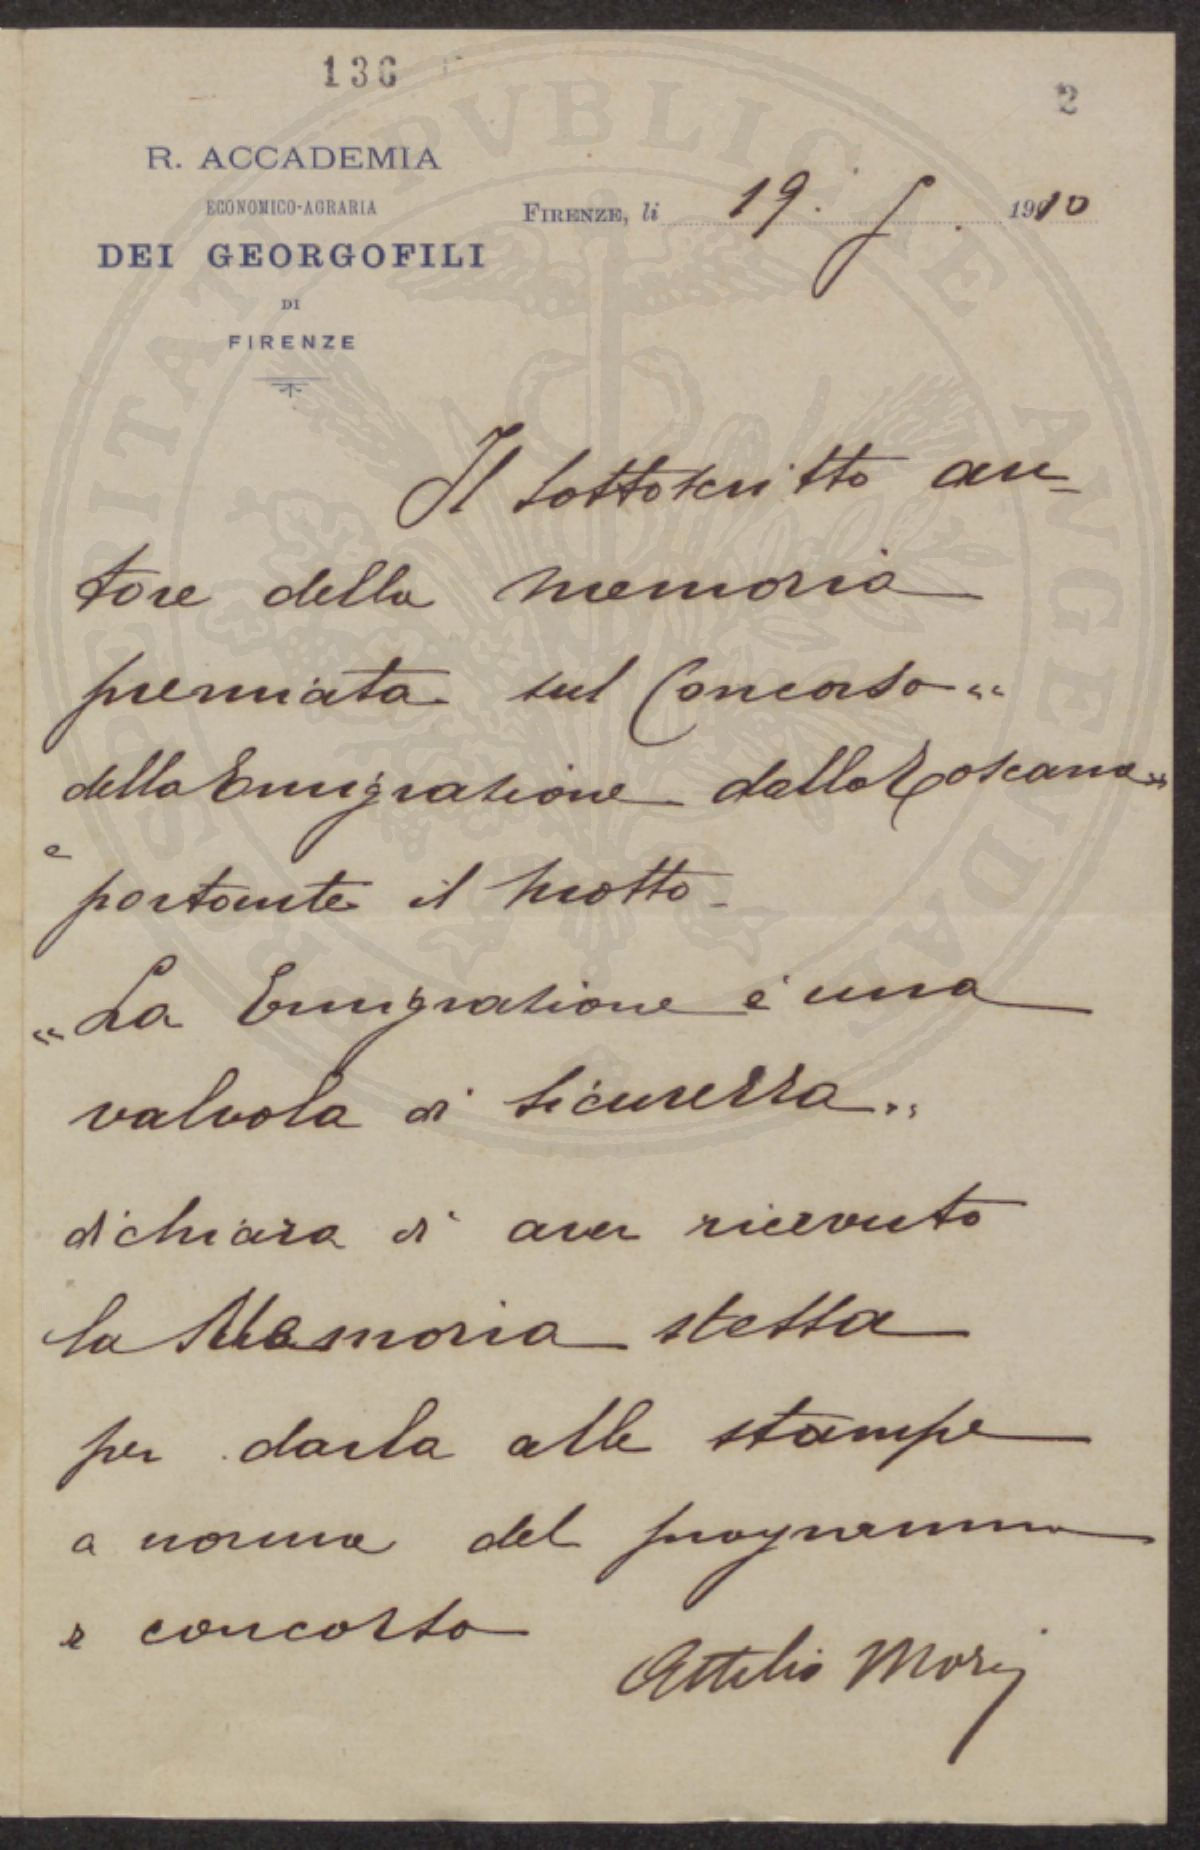 136
2
R. ACCADEMIA
ECONOMICO-AGRARIA
DEI GEORGOFILI
DI
FIRENZE
FIRENZE, li 19. 1910
Il sottoscritto au-
tore della memoria
premiata sul Concorso "
della Emigrazione dalla Toscana "
e
portante il motto -
" La Emigrazione è una
valvola di sicurezza "
dichiara di aver ricevuto
la Memoria stessa
per darla alle stampe
a norma del programma
e concorso
Attilio Mori
PROSPERITATI PVBLICAE AVGENDAE